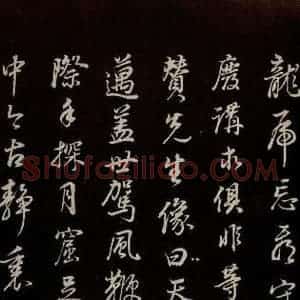 龍
慶講求俱非等
贊先生像曰天
邁蓋世駕風鞭
際手探月窟足
中今古靜裏
Shufaziliao.COM